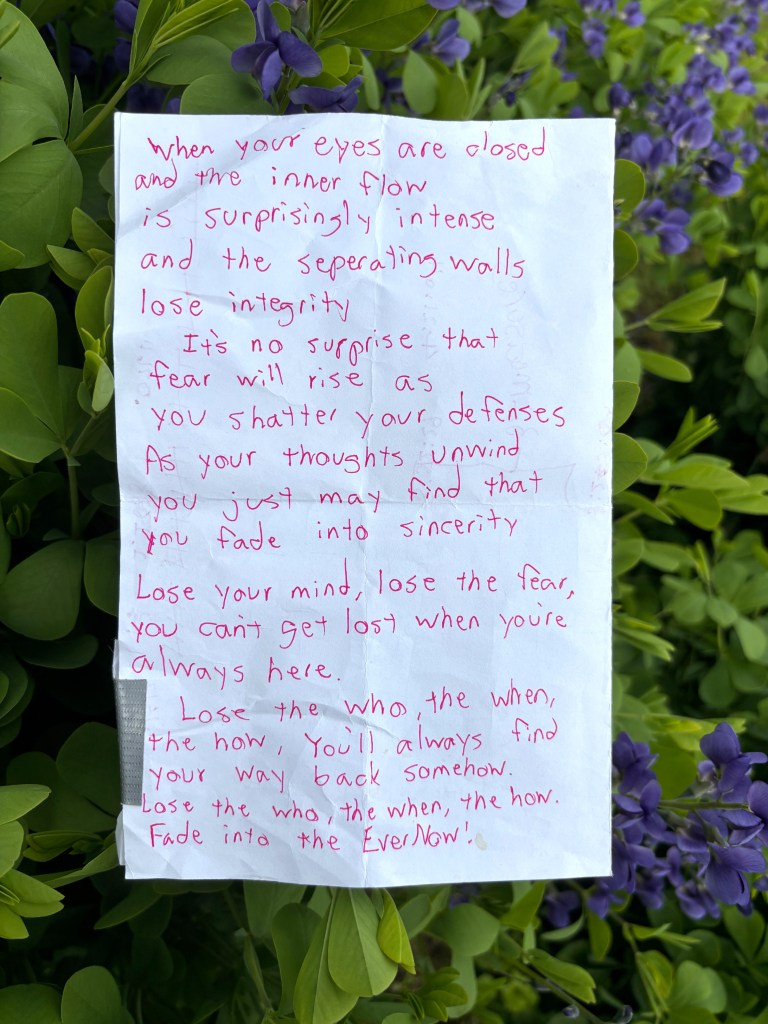 When your eyes are closed
and the inner flow
is surprisingly intense
and the seperating walls
lose integrity
It's no surprise that
fear will rise as
you shatter your defenses
As your thoughts unwind
you just may find that
you fade into sincerity
Lose your mind, lose the fear,
you can't get lost when you're
always here.
Lose the who, the when,
the how, You'll always find
your way back somehow.
Lose the who, the when, the how.
Fade into the EverNow!